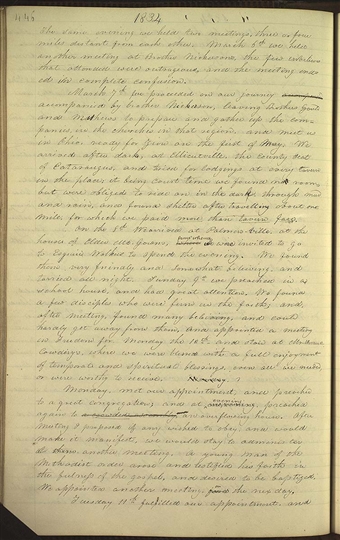 446
1834
The same evening we held two meetings, three or four
miles distant from each other. March 6th we held
another meeting at Brother Nickerson's, the few
that attended were outrageous, and the meeting end
ed in complete confusion.
March 7th we proceeded on our journey
accompanied by brother Nickerson, leaving brothers
and Mathews to prepare and gather up the com-
panies, in the churches in that region, and meet us
in Ohio ready for Zion on the first of May. We
arrived after dark, at Ellicutville, the county seat
of Cataraugus, and tried for lodgings at every tavern
in the place, it being Court time we found no room
but were obliged to ride on in the dark through mud
and rain, and found shelter after travelling about one
mile, for which we paid more than tavern fare.
On the 8th We arrived at Palmersville, at the
house of elder McGowns, were invited to go
to Esquire Walker's to spend the evening. We found
them very friendly and somewhat believing, and
tarried all night. Sunday 9th we preached in a
school house, and had great attention. We found
a few disciples who were firm in the faith; and,
after meeting found many believing, and could
hardly get away from them, and appointed a meeting
in Freedom for Monday the 10th and staid at
Cowdery's, where we were blessed with a full enjoyment
of temporal and spiritual blessings, even all we needed
or were worthy to receive.
Monday, met our appointment, and preached
to a great congregation, and at evening preached
again to an overflowing house. After
meeting I proposed if any wished to obey, and would
make it manifest, we would stay to administer
at another meeting. A young man of the
Methodist order arose and testified his faith in
the fulness of the gospel, and desired to be baptized.
We appointed another meeting, the next day,
Tuesday 11th fulfilled our appointment, and